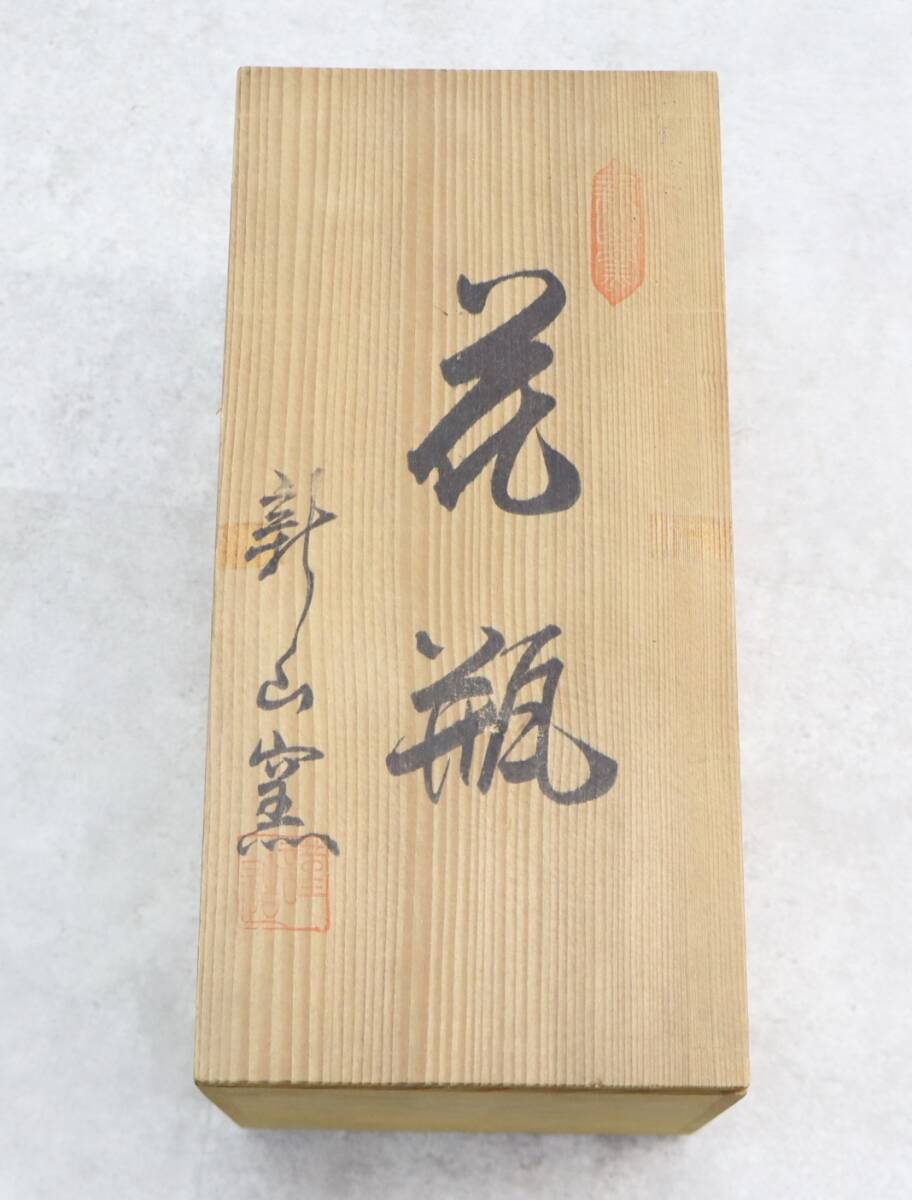 花瓶
新山窯